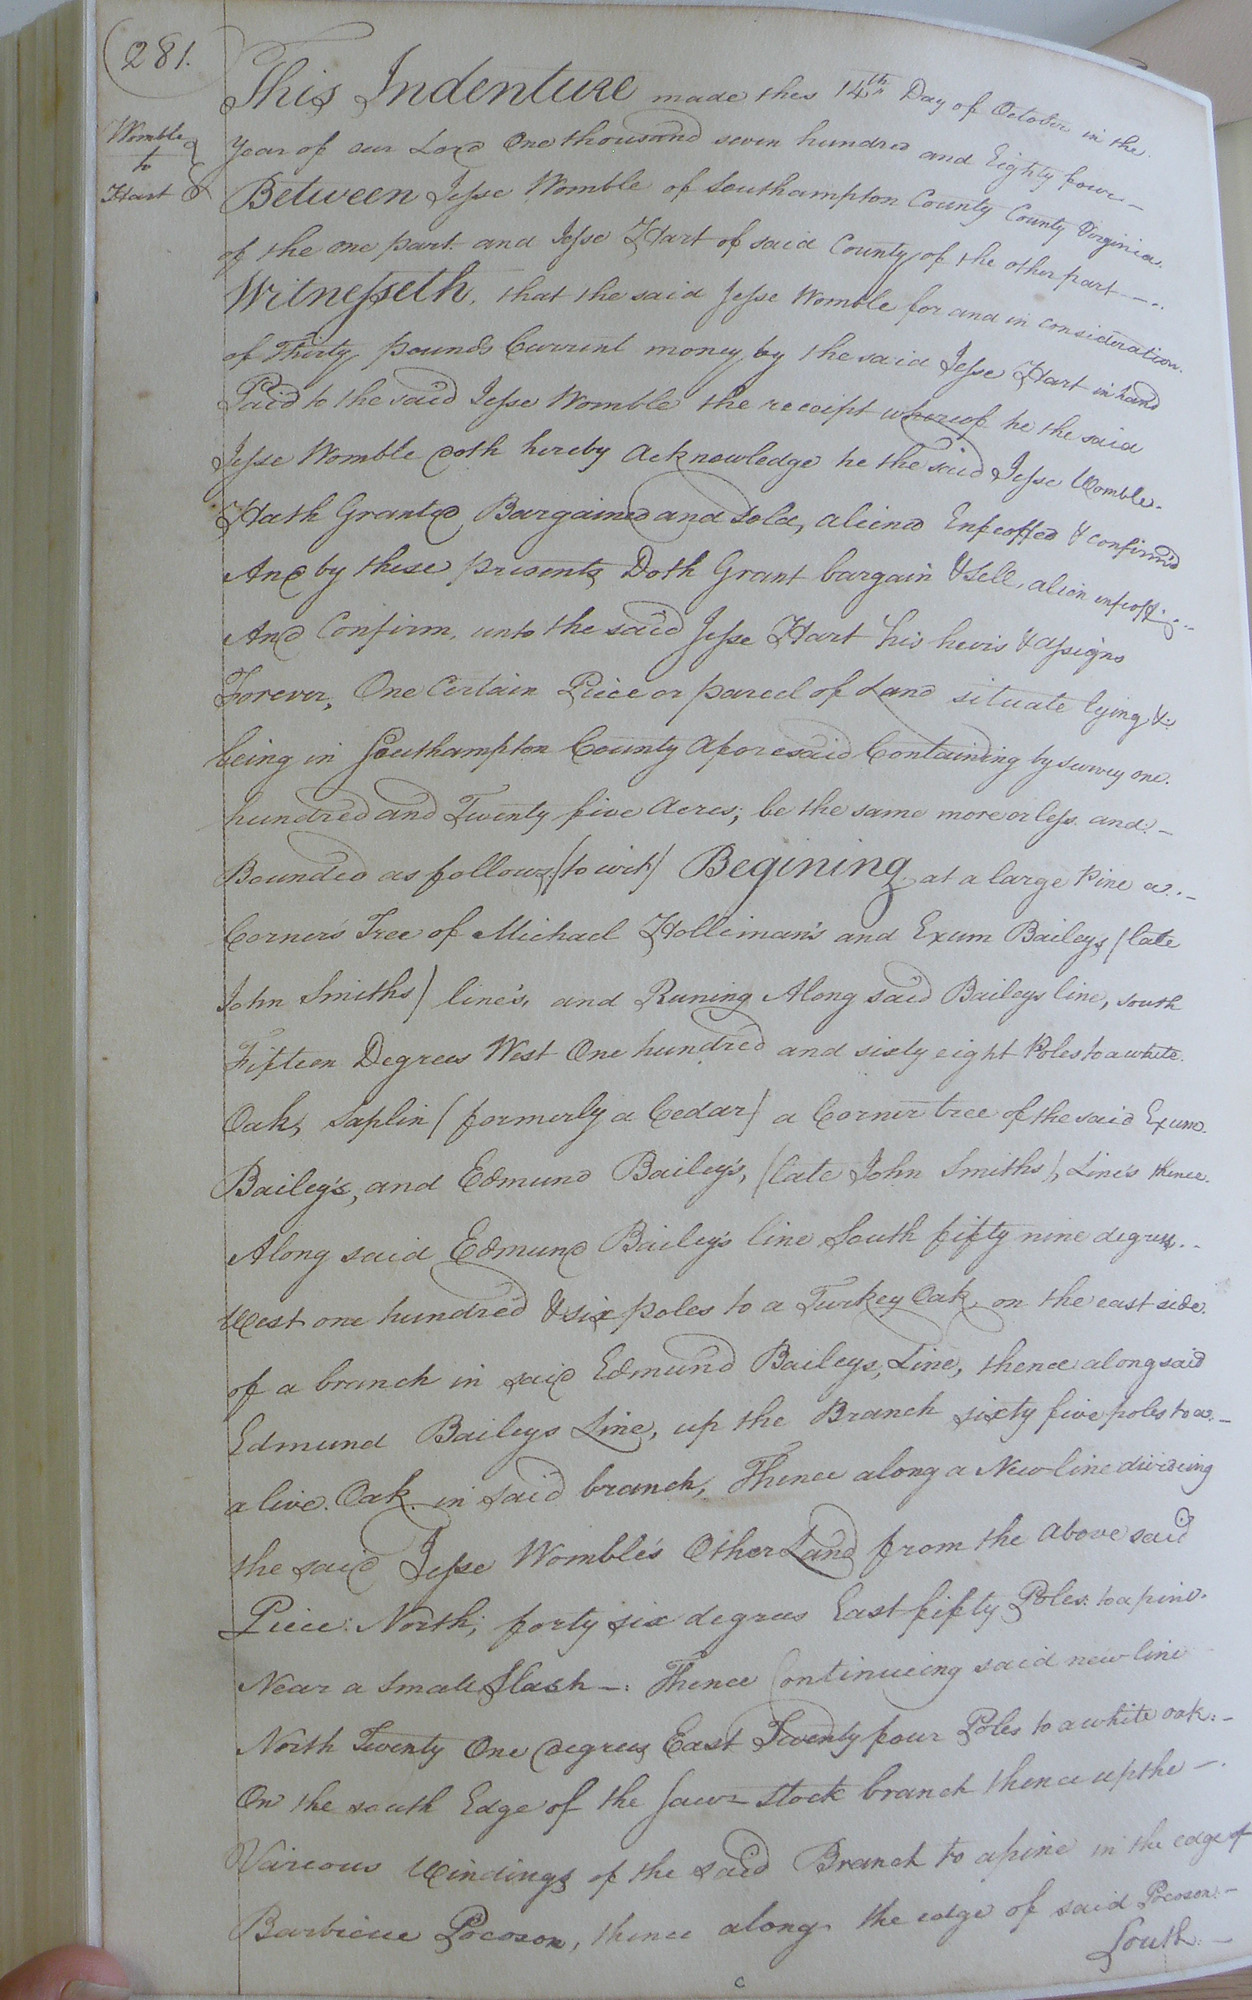 281.
Womble
to
Hart
This Indenture made this 14th Day of October in the
Year of our Lord One thousand seven hundred and Eighty four
Between Jesse Womble of Southampton County County Virginia
of the one part and Jesse Hart of said County of the other part
Witnesseth, that the said Jesse Womble for and in consideration
of Thirty pounds Current money by the said Jesse Hart in hand
Paid to the said Jesse Womble the receipt whereof he the said
Jesse Womble doth hereby Acknowledge he the said Jesse Womble
Hath Granted Bargained and Sold, aliened Enfeoffed & confirm'd
And by these presents Doth Grant bargain & Sell, alien infeoff
And Confirm, unto the said Jesse Hart his heirs & assigns
Forever, One Certain Piece or parcel of Land situate lying &
being in Southampton County Aforesaid Containing by survey one
hundred and Twenty five Acres; be the same more or less and
Bounded as follows (to wit) Begining at a large Pine a
Corner's Tree of Michael Holliman's and Exum Baileys (late
John Smiths) line's, and Runing Along said Baileys line, South
Fifteen Degrees West One hundred and sixty eight Poles to a white
Oak, Saplin (formerly a Cedar) a Corner tree of the said Exum
Bailey's, and Edmund Bailey's, (late John Smiths), Line's thence
Along said Edmund Bailey's line South fifty nine degrees
West one hundred & six poles to a Turkey Oak, on the east side
of a branch in said Edmund Baileys, Line, thence along said
Edmund Baileys Line, up the Branch sixty five poles to a
a live Oak in said branch, Thence along a New line divideing
the said Jesse Womble's Other Land from the above said
Piece: North; forty six degrees East fifty Poles to a pine
Near a Small Slash Thence Continueing said new line
North Twenty One degrees East Twenty four Poles to a white oak
On the south Edge of the Saw Stock branch thence up the
Vairous Windings of the said Branch to a pine in the edge of
Barbicue Pocoson, thence along the edge of said Pocoson
South